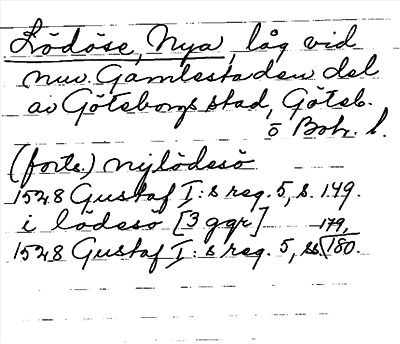 Lödöse, Nya, låg vid
nuv. Gamlestaden del
av Göteborgs stad, Göteb.
o Boh. l.
(forts.) nylödesö
1528 Gustaf I:s reg. 5, s. 149.
i lödesö [3 ggr]
1528 Gustaf I:s reg. 5, ss. 179, 180.